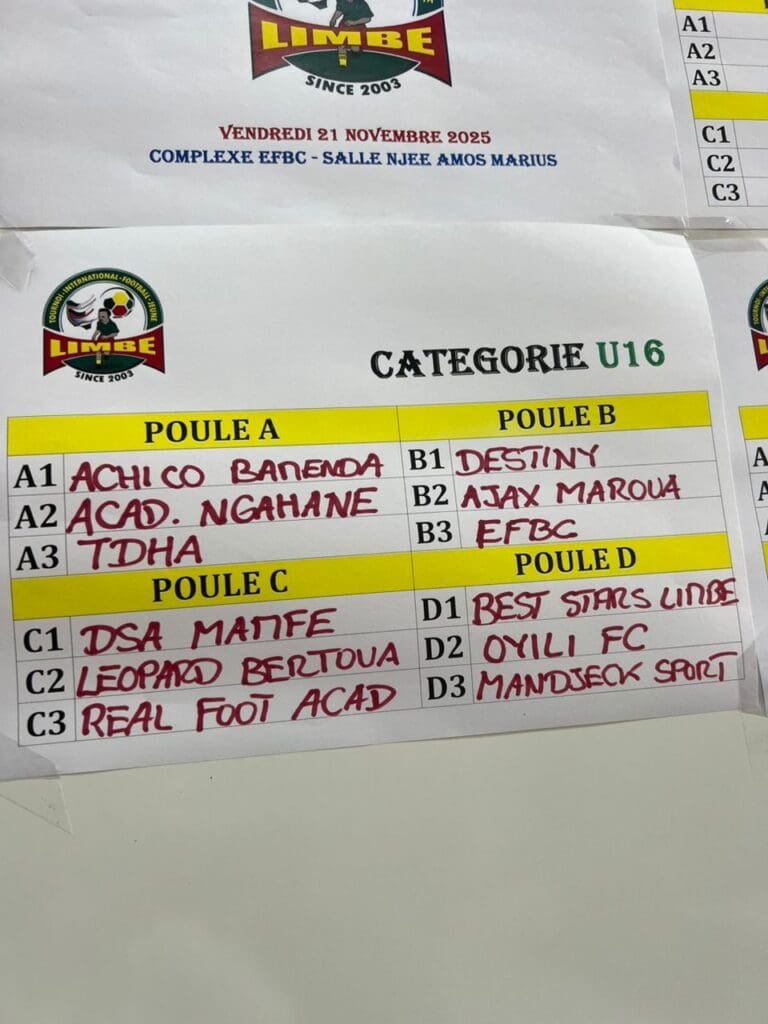 LIMBE
SINCE 2003
VENDREDI 21 NOVEMBRE 2025
COMPLEXE EFBC - SALLE NJEE AMOS MARIUS
A1
A2
A3
C1
C2
C3
TOURNOI INTERNATIONAL FOOTBALL JEUNE
LIMBE
SINCE 2003
CATEGORIE U16
POULE A POULE B
A1 ACHICO BAMENDA B1 DESTINY
A2 ACAD. NGAHANE B2 AJAX MAROUA
A3 TDHA B3 EFBC
POULE C POULE D
C1 DSA MAMFE D1 BEST STARS LIMBE
C2 LEOPARD BERTOUA D2 OYILI FC
C3 REAL FOOT ACAD D3 MANDJECK SPORT